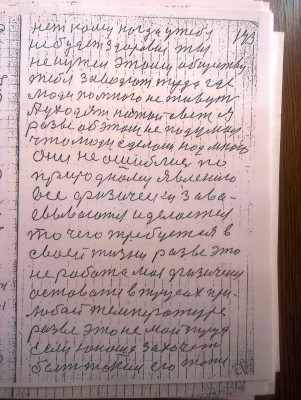 нет кому когда у тебя
143
не будет здоровья ты
не нужен этому обществу
тебя заводют туда где
люди помногу не живут
А уходят на той свет я
разве об этом не подумал
что люди сделали надо мною
они не ошиблися по
природному явлению
все физически зава-
ёвываются и делается
то чего требуется в
своей жизни разве это
не работа моя физически
оставаться в трусах при
любой температуре
разве это не мой труд
если юноша захочет
быть таким его тоже